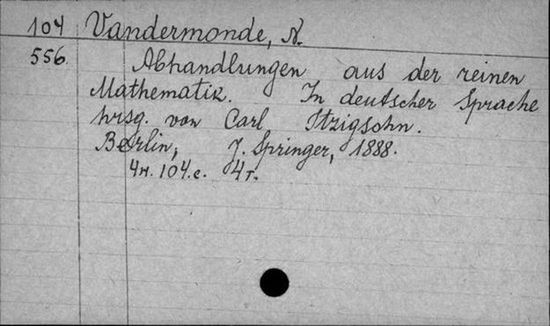 104 Vandermonde, N.
556. Abhandlungen aus der reinen
Mathematik. In deutscher Sprache
hrsg. von Carl Itzigsohn.
Berlin, J. Springer, 1888.
4н. 104.c. 4т.